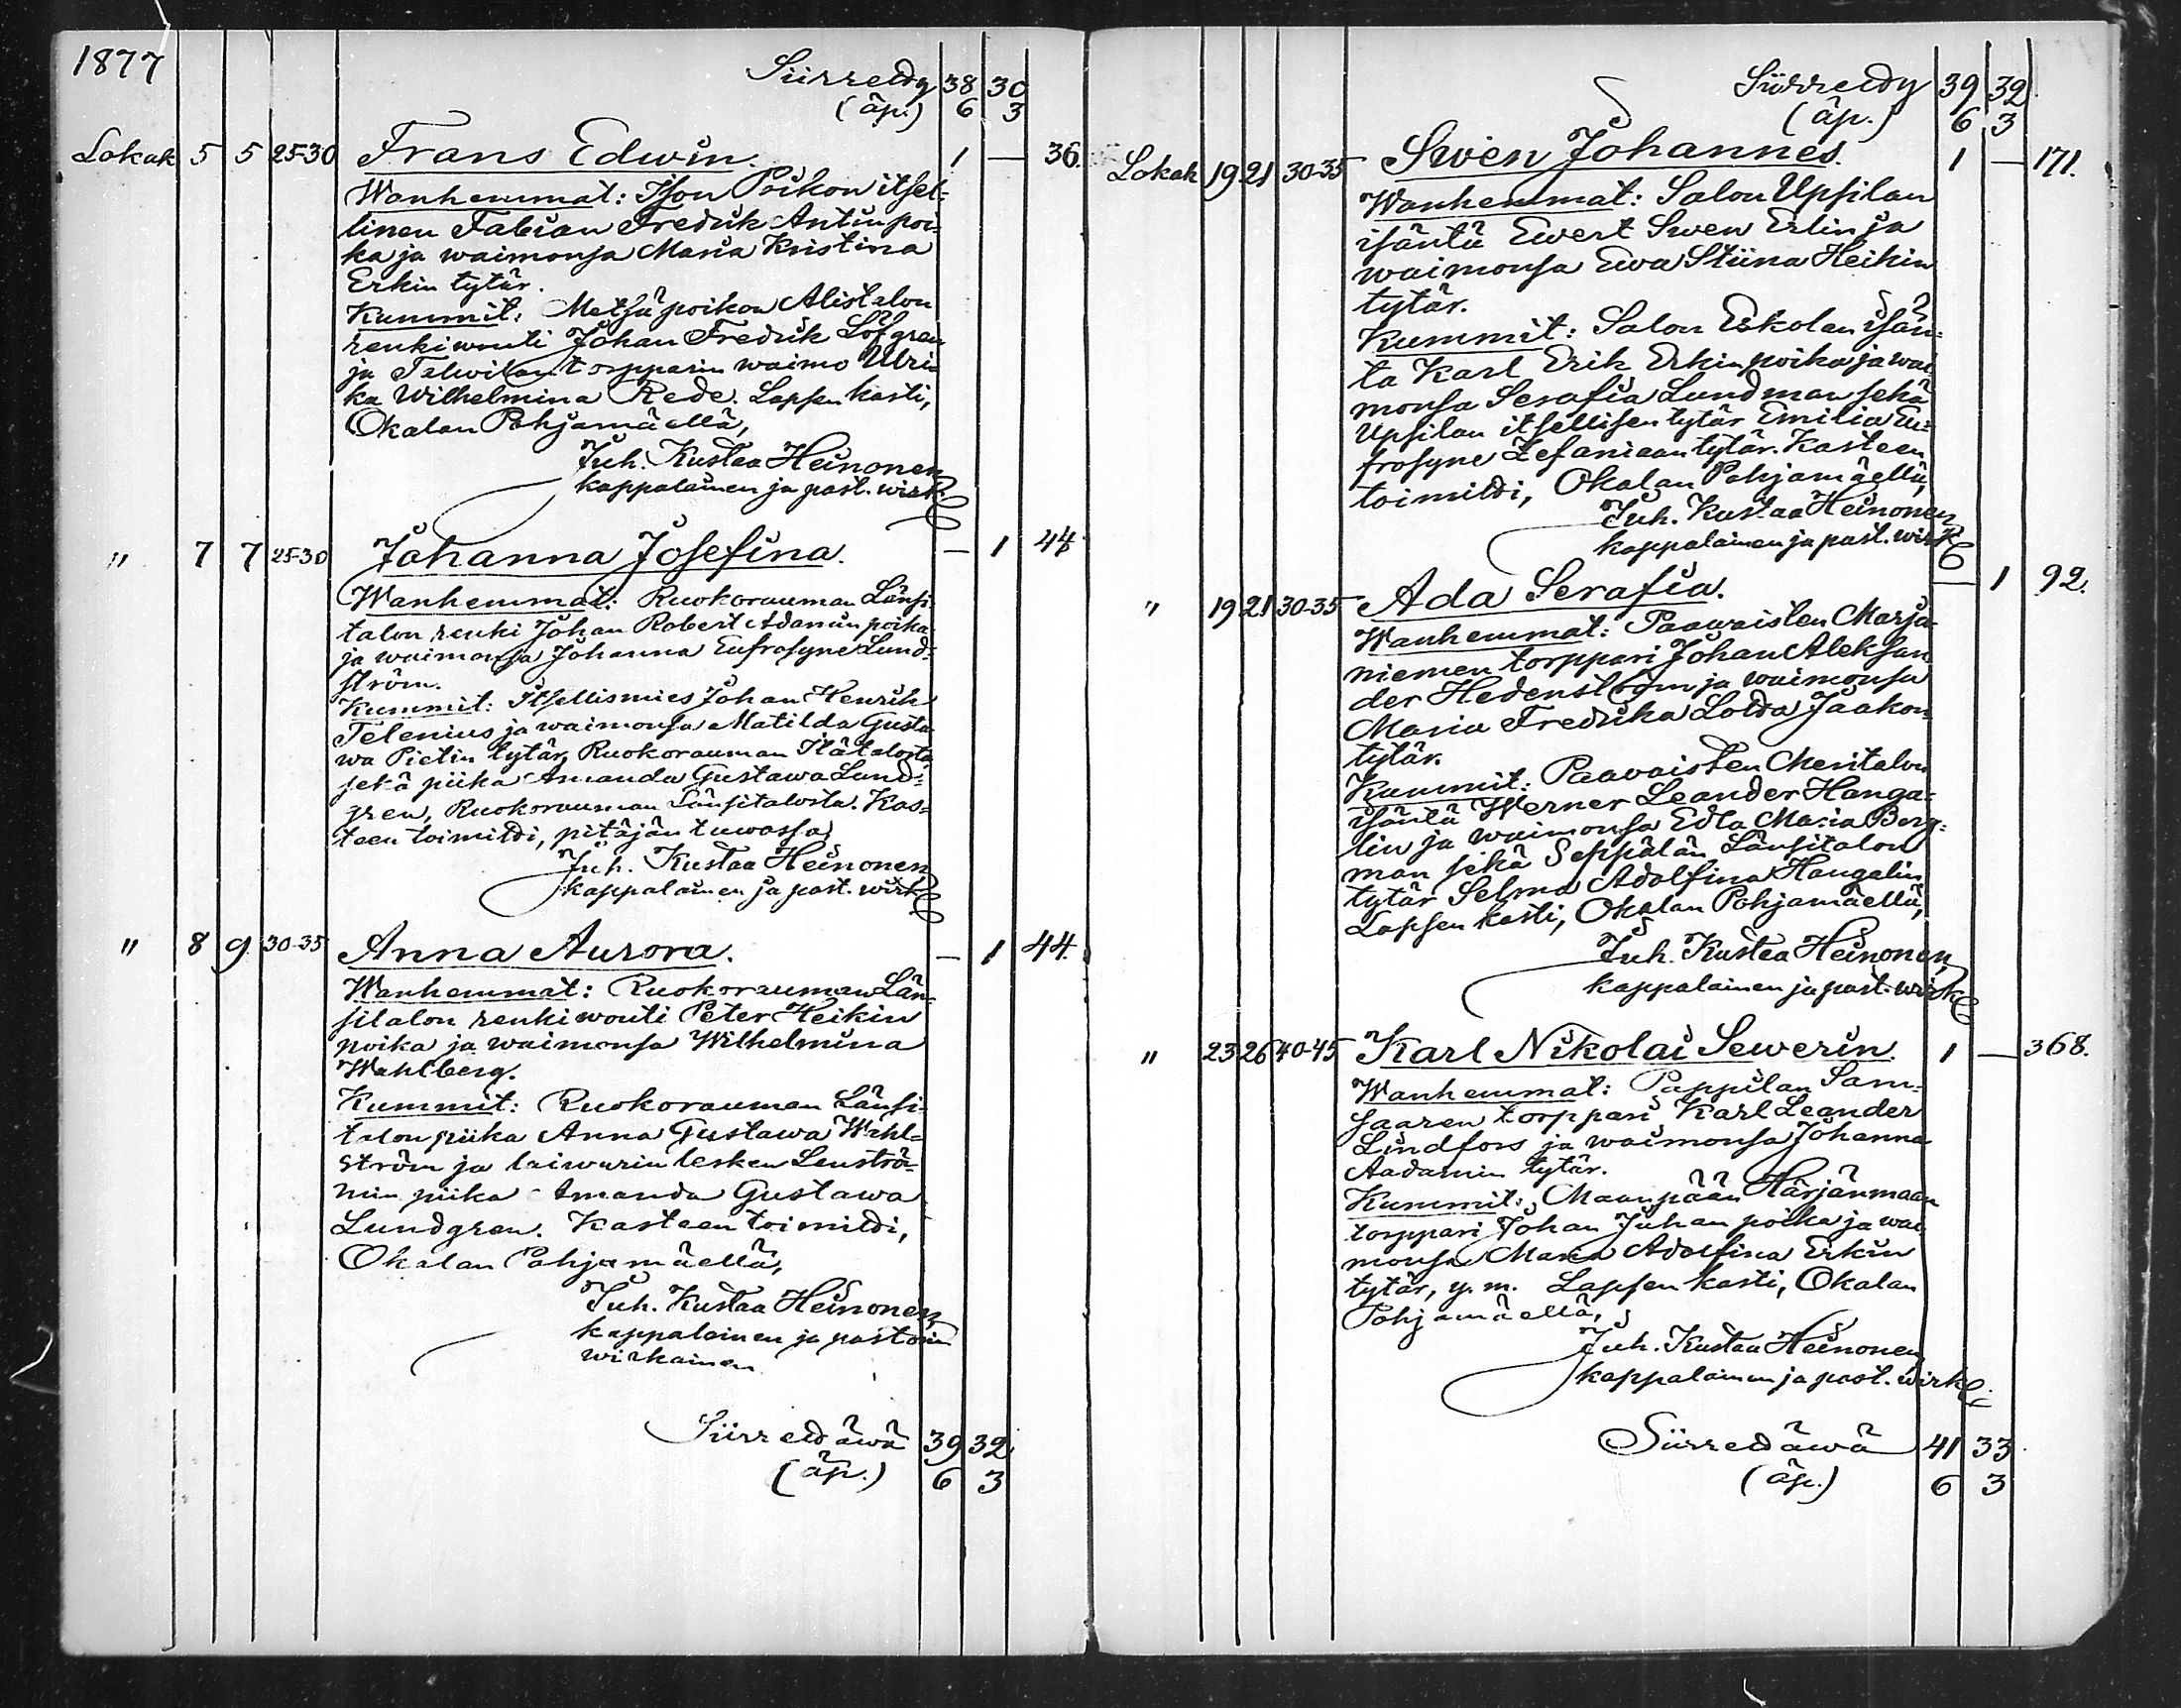 1877
Siirretty 38 30
(äp.) 6 3
Lokak 5 5 25-30 Frans Edwin. 1 — 36.
Wanhemmat: Ison Poikon itsel-
linen Fabian Fredrik Antin poi-
ka ja waimonsa Maria Kristina
Erkin tytär.
Kummit: Metsäpoikon Alistalon
renkiwouti Johan Fredrik Löfgren
ja torpparin waimo Ulri-
ka Wilhelmina Rede. Lapsen kasti,
Okalan Pohjamäellä,
Juh. Kustaa Heinonen
kappalainen ja past. wirk.
" 7 7 25-30 Johanna Josefina. — 1 44
Wanhemmat: Ruokorauman Länsi-
talon renki Johan Robert Adamin poika
ja waimonsa Johanna Eufrosyne Lund-
ström.
Kummit: Itsellismies Johan Henrik
Telenius ja waimonsa Matilda Gusta-
wa Pietin tytär, Ruokorauman Itätalosta
sekä piika Amanda Gustawa Lund-
gren, Ruokorauman Länsitalosta. Kas-
teen toimitti, pitäjän tuwassa,
Juh. Kustaa Heinonen
kappalainen ja past. wirk.
" 8 9 30-35 Anna Aurora. — 1 44.
Wanhemmat: Ruokorauman Län-
sitalon renkiwouti Peter Heikin
poika ja waimonsa Wilhelmina
Wahlberg.
Kummit: Ruokorauman Länsi-
talon piika Anna Gustawa Wahl-
ström ja laiwurin lesken Lenströ-
min piika Amanda Gustawa
Lundgren. Kasteen toimitti,
Okalan Pohjamäellä,
Juh. Kustaa Heinonen,
kappalainen ja pastorin
wirkainen
Siirrettäwä 39 32
(äp.) 6 3
Siirretty 39 32
(äp.) 6 3
Lokak 19 21 30-35 Swen Johannes. 1 — 171.
Wanhemmat: Salon Upsilan
isäntä Ewert Swen Erlin ja
waimonsa Ewa Stiina Heikin
tytär.
Kummit: Salon Eskolan isän-
tä Karl Erik Erkin poika ja wai-
monsa Serafia Lundman sekä
Upsilan itsellisen tytär Emilia Eu-
frosyne Zefaniaan tytär. Kasteen
toimitti, Okalan Pohjamäellä,
Juh. Kustaa Heinonen
kappalainen ja past. wirk.
" 19 21 30-35 Ada Serafia. — 1 92.
Wanhemmat: Paawaisten Marja-
niemen torppari Johan Aleksan-
der Hedenström ja waimonsa
Maria Fredrika Lotta Jaakon
tytär.
Kummit: Paavaisten Meritalon
isäntä Werner Leander Hanga-
lin ja waimonsa Edla Maria Berg-
man sekä Seppälän Länsitalon
tytär Selma Adolfina Hangalin
Lapsen kasti, Okalan Pohjamäellä,
Juh. Kustaa Heinonen,
kappalainen ja past. wirk
" 23 26 40-45 Karl Nikolai Sewerin. 1 — 368.
Wanhemmat: Pappilan Sam-
saaren torppari Karl Leander
Lindfors ja waimonsa Johanna
Aadamin tytär.
Kummit: Maanpään Härjänmaan
torppari Johan Juhan poika ja wai-
monsa Maria Adolfina Erkin
tytär, y. m. Lapsen kasti, Okalan
Pohjamäellä,
Juh. Kustaa Heinonen,
kappalainen ja past. wirk.
Siirrettäwä 41 33
(äp.) 6 3